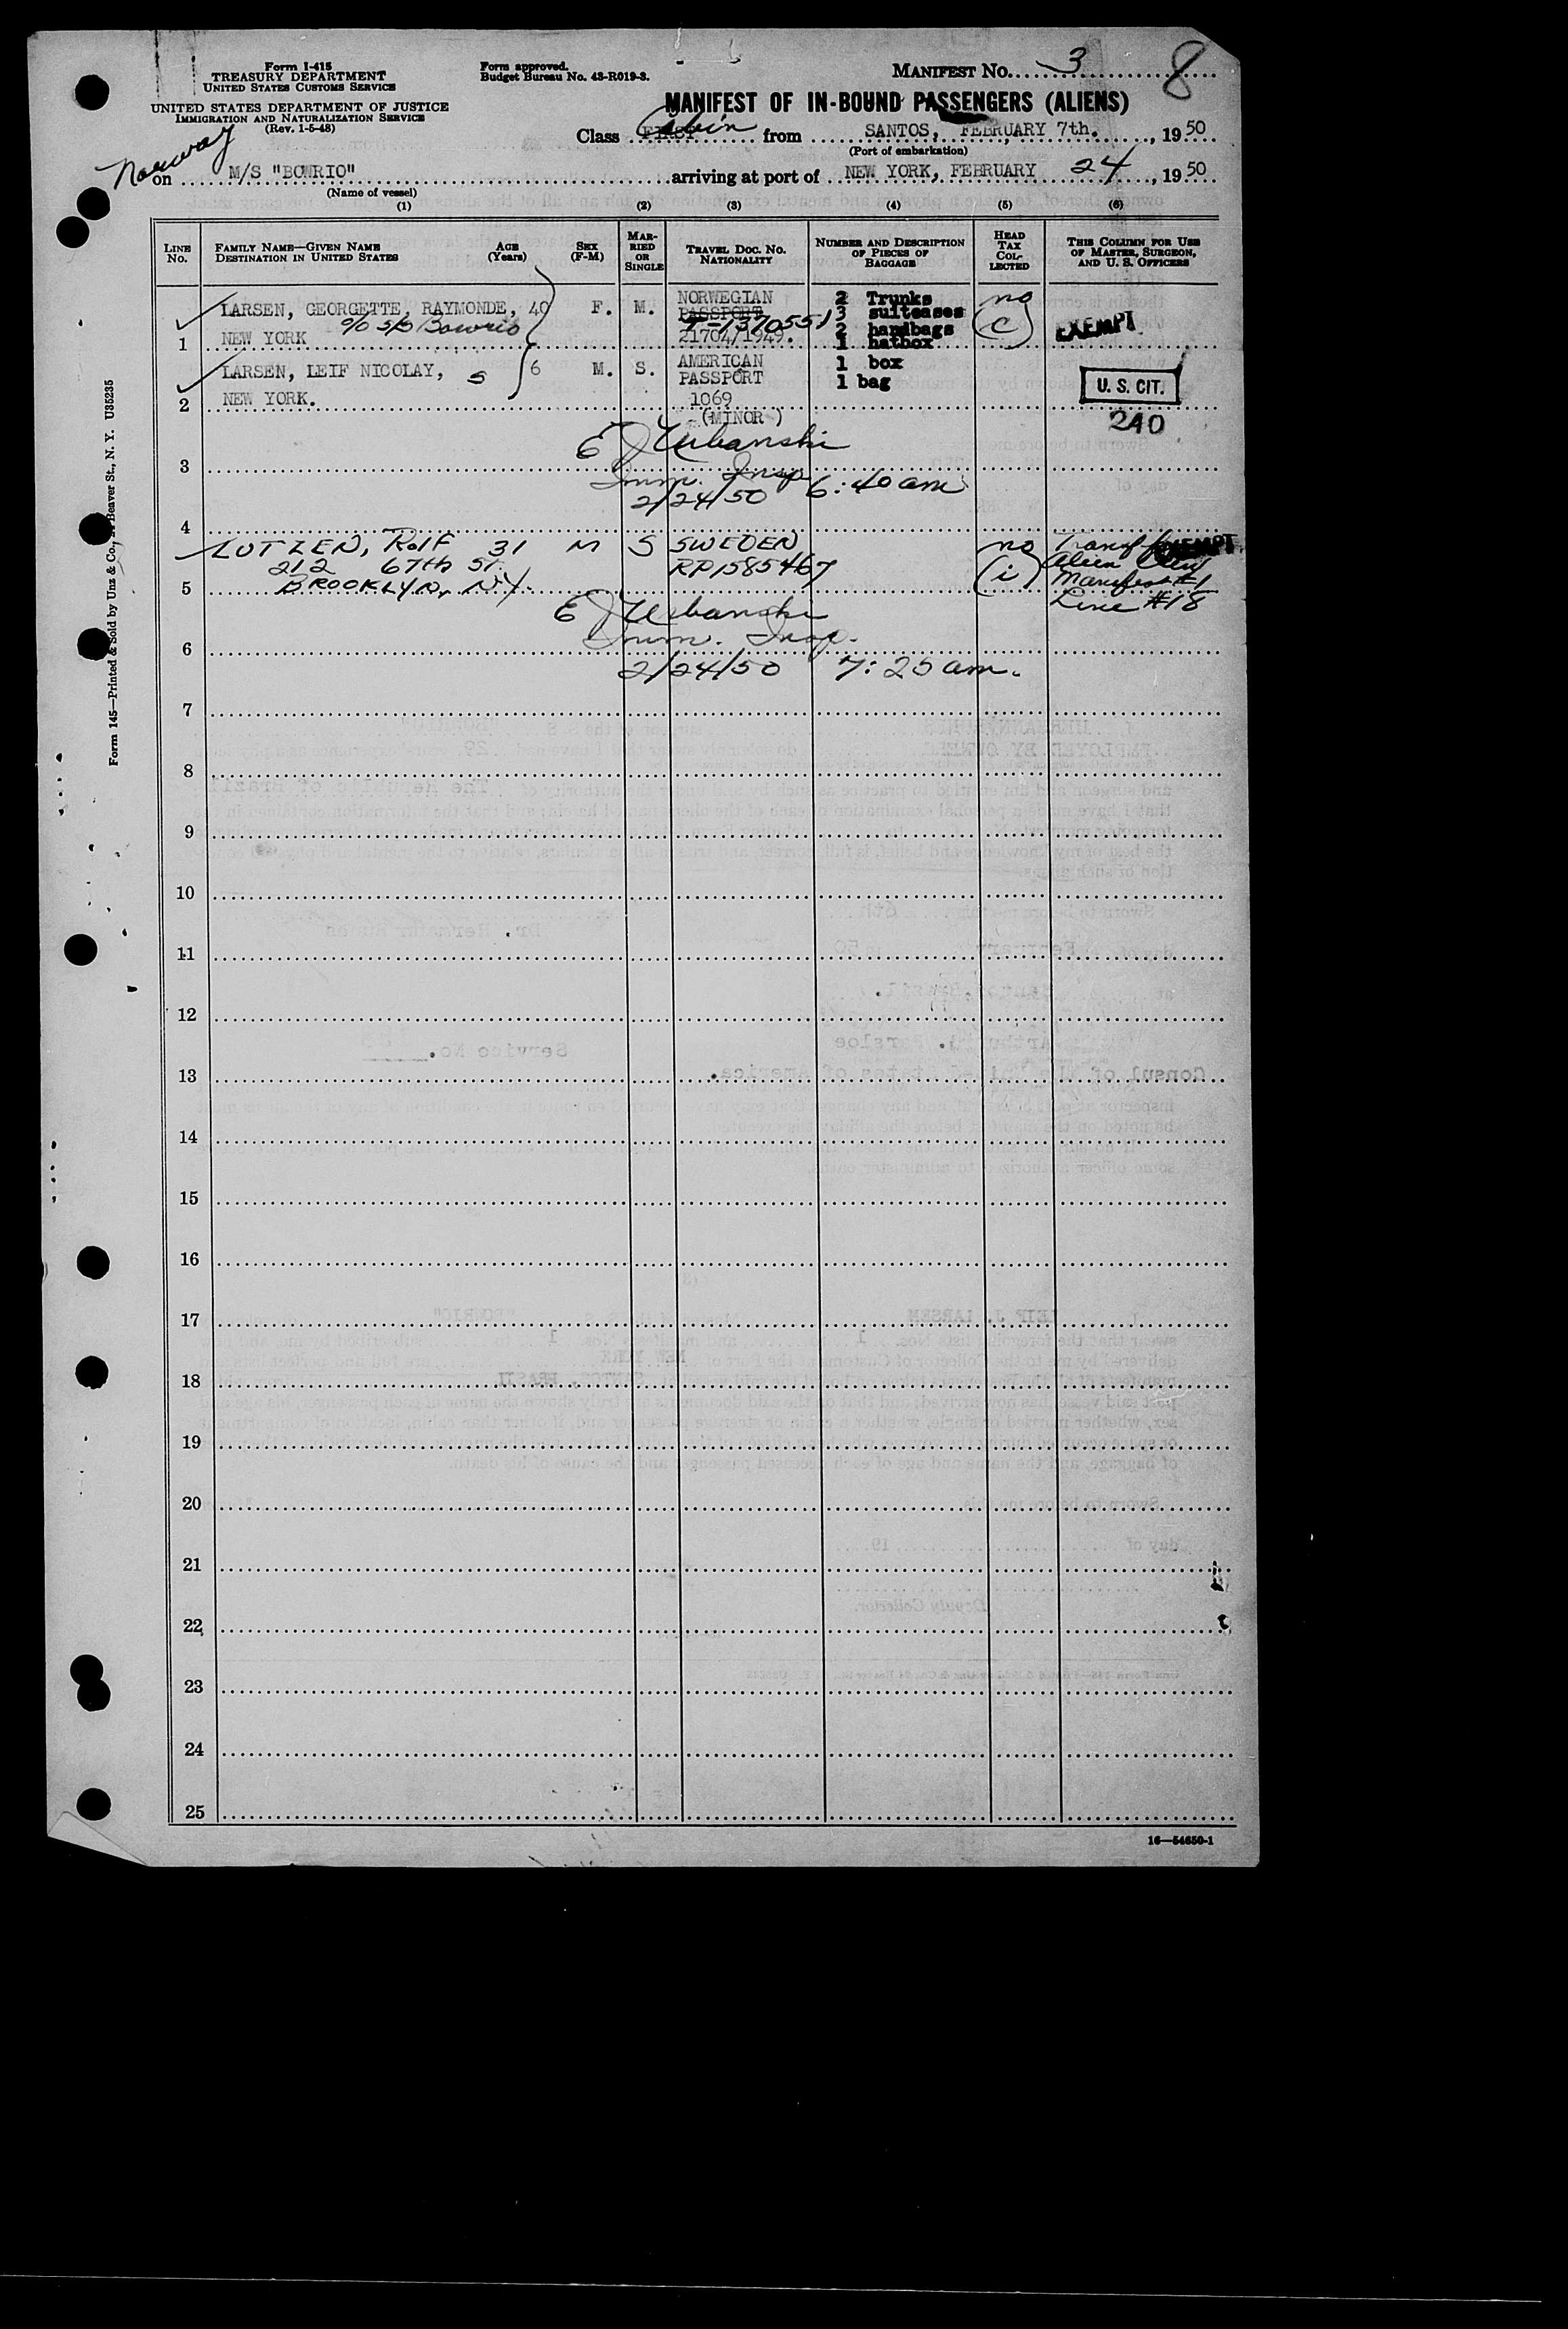 Form I-415
TREASURY DEPARTMENT
UNITED STATES CUSTOMS SERVICE
UNITED STATES DEPARTMENT OF JUSTICE
IMMIGRATION AND NATURALIZATION SERVICE
(Rev. 1-5-48)
Form approved.
Budget Bureau No. 43-R019-3.
MANIFEST No. 3
8
MANIFEST OF IN-BOUND PASSENGERS (ALIENS)
Class FIRST Cabin from SANTOS, FEBRUARY 7th., 1950
(Port of embarkation)
Norway
on M/S "BOWRIO" arriving at port of NEW YORK, FEBRUARY 24, 1950
(Name of vessel)
(1) (2) (3) (4) (5) (6)
LINE No. FAMILY NAME—GIVEN NAME DESTINATION IN UNITED STATES AGE (Years) SEX (F-M) MARRIED OR SINGLE TRAVEL DOC. NO. NATIONALITY NUMBER AND DESCRIPTION OF PIECES OF BAGGAGE HEAD TAX COLLECTED THIS COLUMN FOR USE OF MASTER, SURGEON, AND U. S. OFFICERS
LARSEN, GEORGETTE, RAYMONDE, 40 F. M. NORWEGIAN 2 Trunks no
c/o S/S Bowrio PASSPORT 3 suitcases
T-1370551 2 handbags (c) EXEMPT
1 NEW YORK 21704/1949. 1 hatbox
LARSEN, LEIF NICOLAY, S 6 M. S. AMERICAN 1 box
PASSPORT 1 bag U. S. CIT.
2 NEW YORK. 1069
(MINOR) 240
E J Urbanski
3
Imm. Insp. 6:40 am
2/24/50
4
LUTZEN, Rolf 31 M S SWEDEN no Transf from EXEMPT
212 67th ST. RP1585467 (i) Alien Crew
5 BROOKLYN, NY. Manifest #1
Line #18
E J Urbanski
Imm. Insp.
6
2/24/50 7:25 am.
7
8
9
10
11
12
13
14
15
16
17
18
19
20
21
22
23
24
25
16—54650-1
Form 145—Printed & Sold by Unz & Co., Beaver St., N. Y. U35235